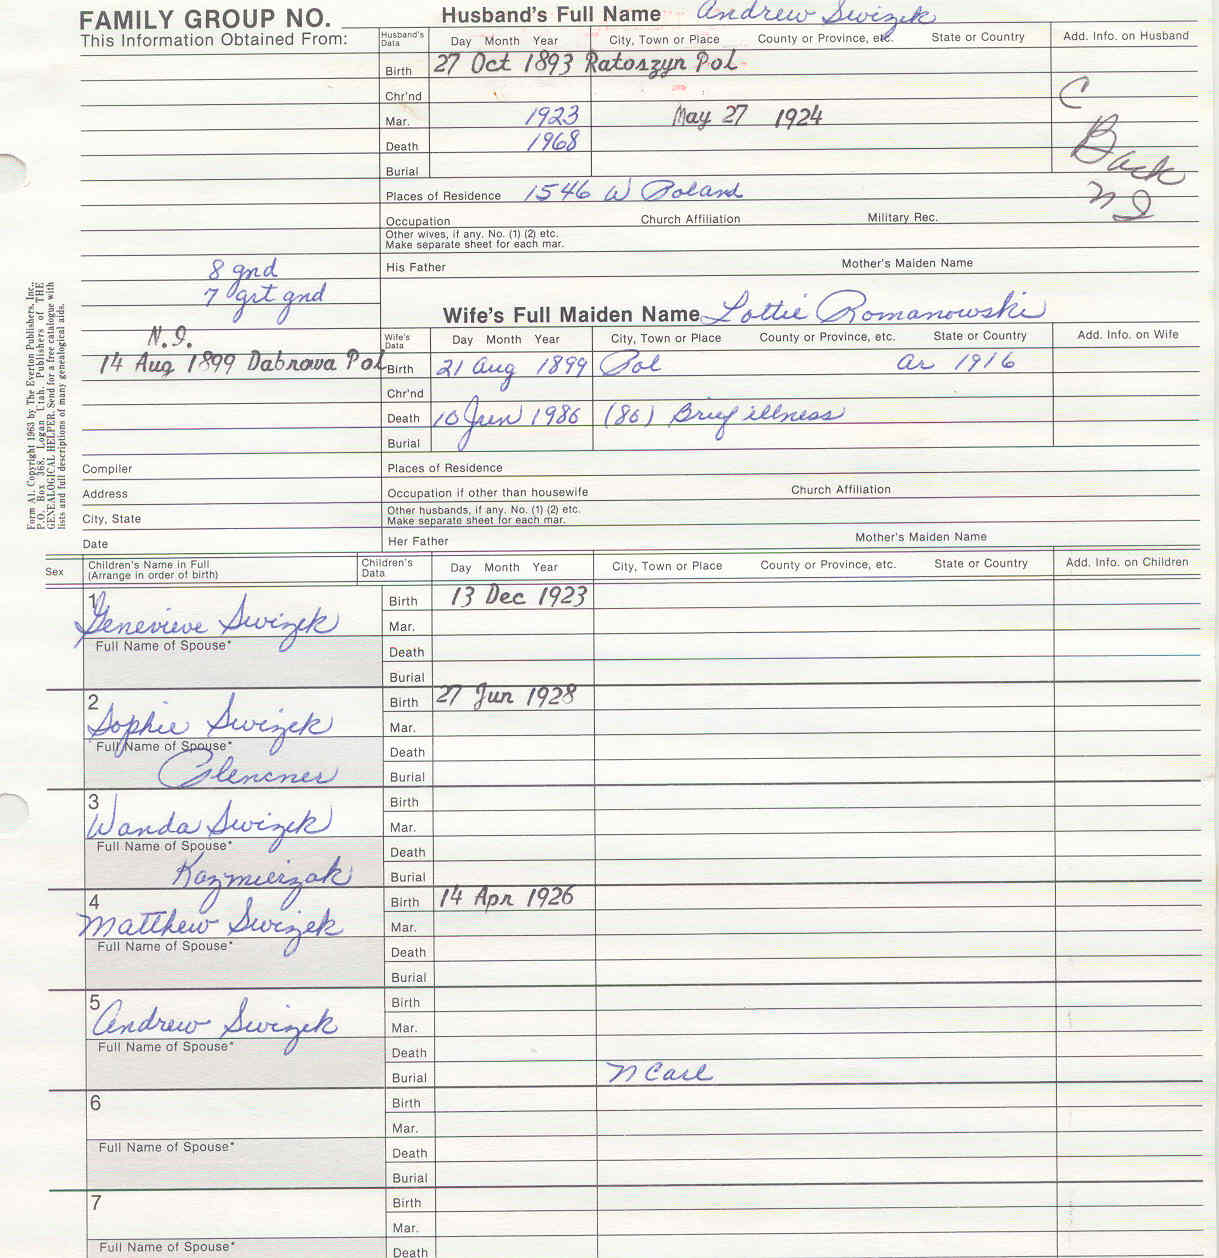 FAMILY GROUP NO. Husband's Full Name Andrew Swizek
This Information Obtained From: Husband's Data Day Month Year City, Town or Place County or Province, etc. State or Country Add. Info. on Husband
Birth 27 Oct 1893 Ratoszyn Pol
Chr'nd C
Mar. 1923 May 27 1924
Death 1968 Back
Burial
Places of Residence 1546 W Poland N I
Occupation Church Affiliation Military Rec.
Other wives, if any. No. (1) (2) etc.
Make separate sheet for each mar.
8 gnd His Father Mother's Maiden Name
7 grt gnd
Wife's Full Maiden Name Lottie Romanowski
N.I. Wife's Data Day Month Year City, Town or Place County or Province, etc. State or Country Add. Info. on Wife
14 Aug 1899 Dabrowa Pol Birth 21 Aug 1899 Pol ar 1916
Chr'nd
Death 10 Jun 1986 (86) Brief illness
Burial
Compiler Places of Residence
Address Occupation if other than housewife Church Affiliation
City, State Other husbands, if any. No. (1) (2) etc.
Make separate sheet for each mar.
Date Her Father Mother's Maiden Name
Form A1. Copyright 1963 by The Everton Publishers, Inc.,
P.O. Box 368, Logan Utah. Publishers of THE
GENEALOGICAL HELPER. Send for a free catalogue with
lists and full descriptions of many genealogical aids.
Sex Children's Name in Full (Arrange in order of birth) Children's Data Day Month Year City, Town or Place County or Province, etc. State or Country Add. Info. on Children
1 Birth 13 Dec 1923
Genevieve Swizek Mar.
Full Name of Spouse* Death
Burial
2 Birth 27 Jun 1928
Sophie Swizek Mar.
Full Name of Spouse* Death
Glencner Burial
3 Birth
Wanda Swizek Mar.
Full Name of Spouse* Death
Kazmierzak Burial
4 Birth 14 Apr 1926
Matthew Swizek Mar.
Full Name of Spouse* Death
Burial
5 Birth
Andrew Swizek Mar.
Full Name of Spouse* Death
Burial N Carl
6 Birth
Mar.
Full Name of Spouse* Death
Burial
7 Birth
Mar.
Full Name of Spouse* Death